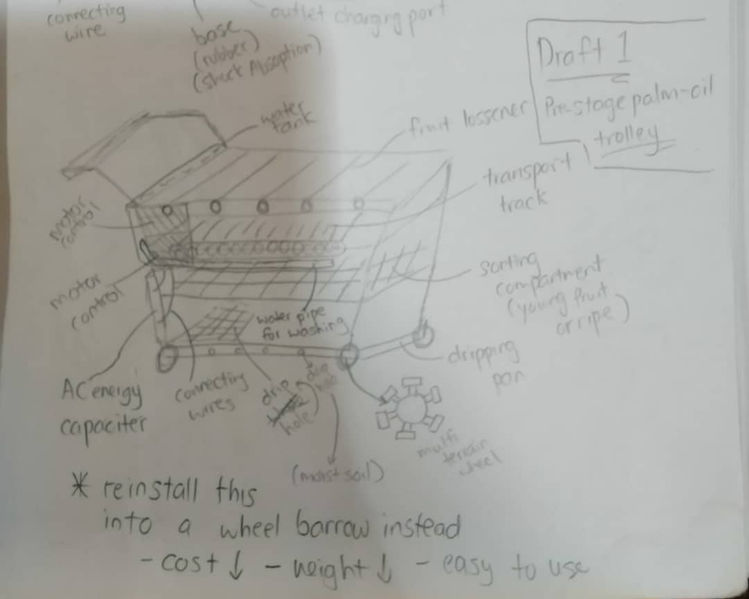 connecting
wire
base
(rubber)
(shock Absoption)
outlet charging port
Draft 1
Pre-stage palm-oil
trolley
water
tank
fruit lossener
transport
track
motor
control
motor
control
sorting
compartment
(young fruit
or ripe)
water pipe
for washing
dripping
pan
AC energy
capaciter
connecting
wires
drip
hole
drip
hole
(moist soil)
multi
terrain
wheel
* reinstall this
into a wheel barrow instead
- cost ↓ - weight ↓ - easy to use